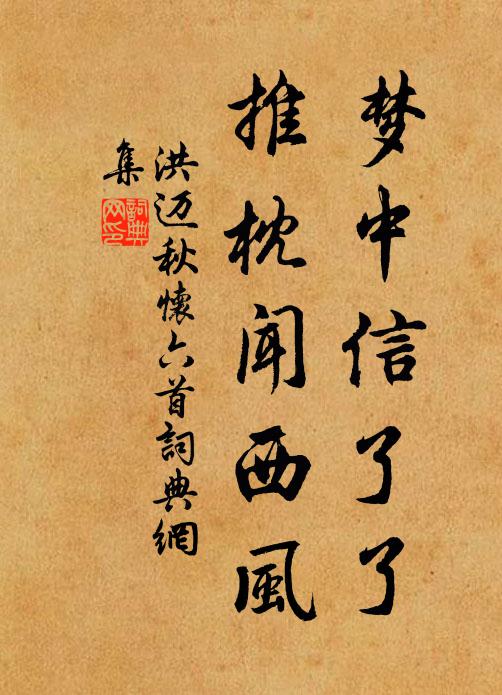 梦中信了了
推枕闻西風
洪迈秋懷六首詞典網
集
詞典
网印